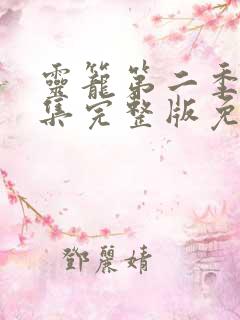 靈籠第二季
集完整版免
鄧麗婧